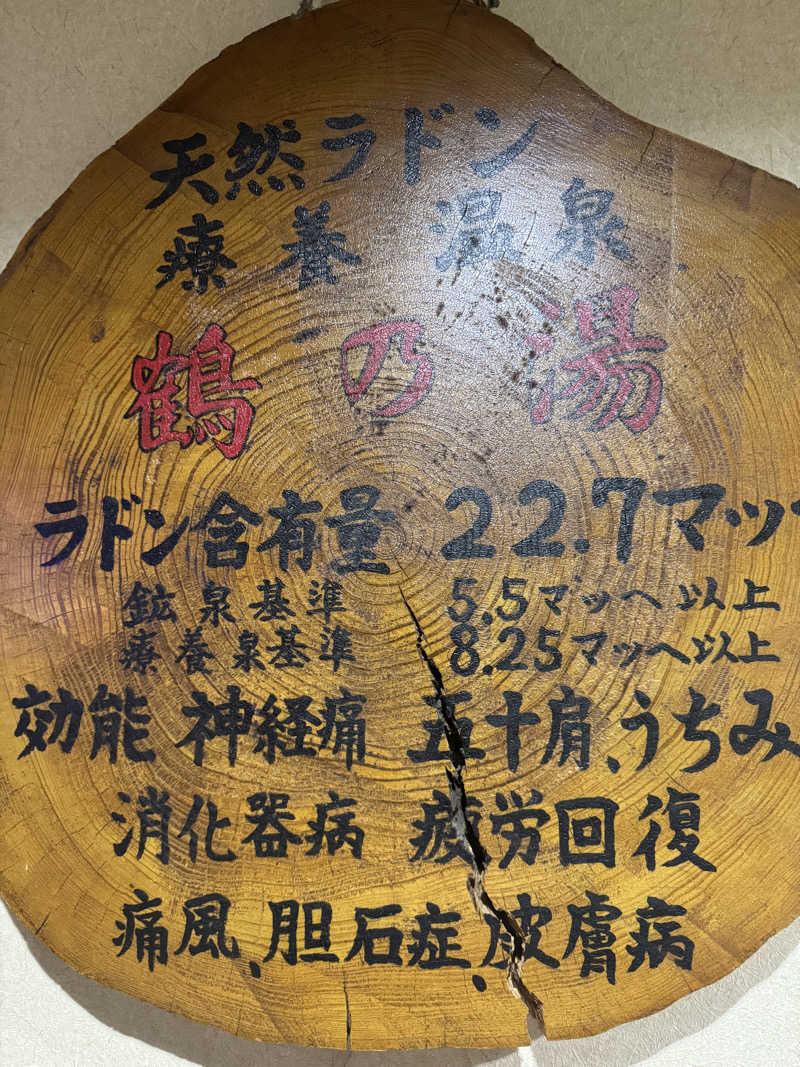 天然ラドン
療養温泉
鶴乃湯
ラドン含有量 22.7マッ
鉱泉基準 5.5マッヘ以上
療養泉基準 8.25マッヘ以上
効能 神経痛 五十肩、うちみ
消化器病 疲労回復
痛風、胆石症、皮膚病